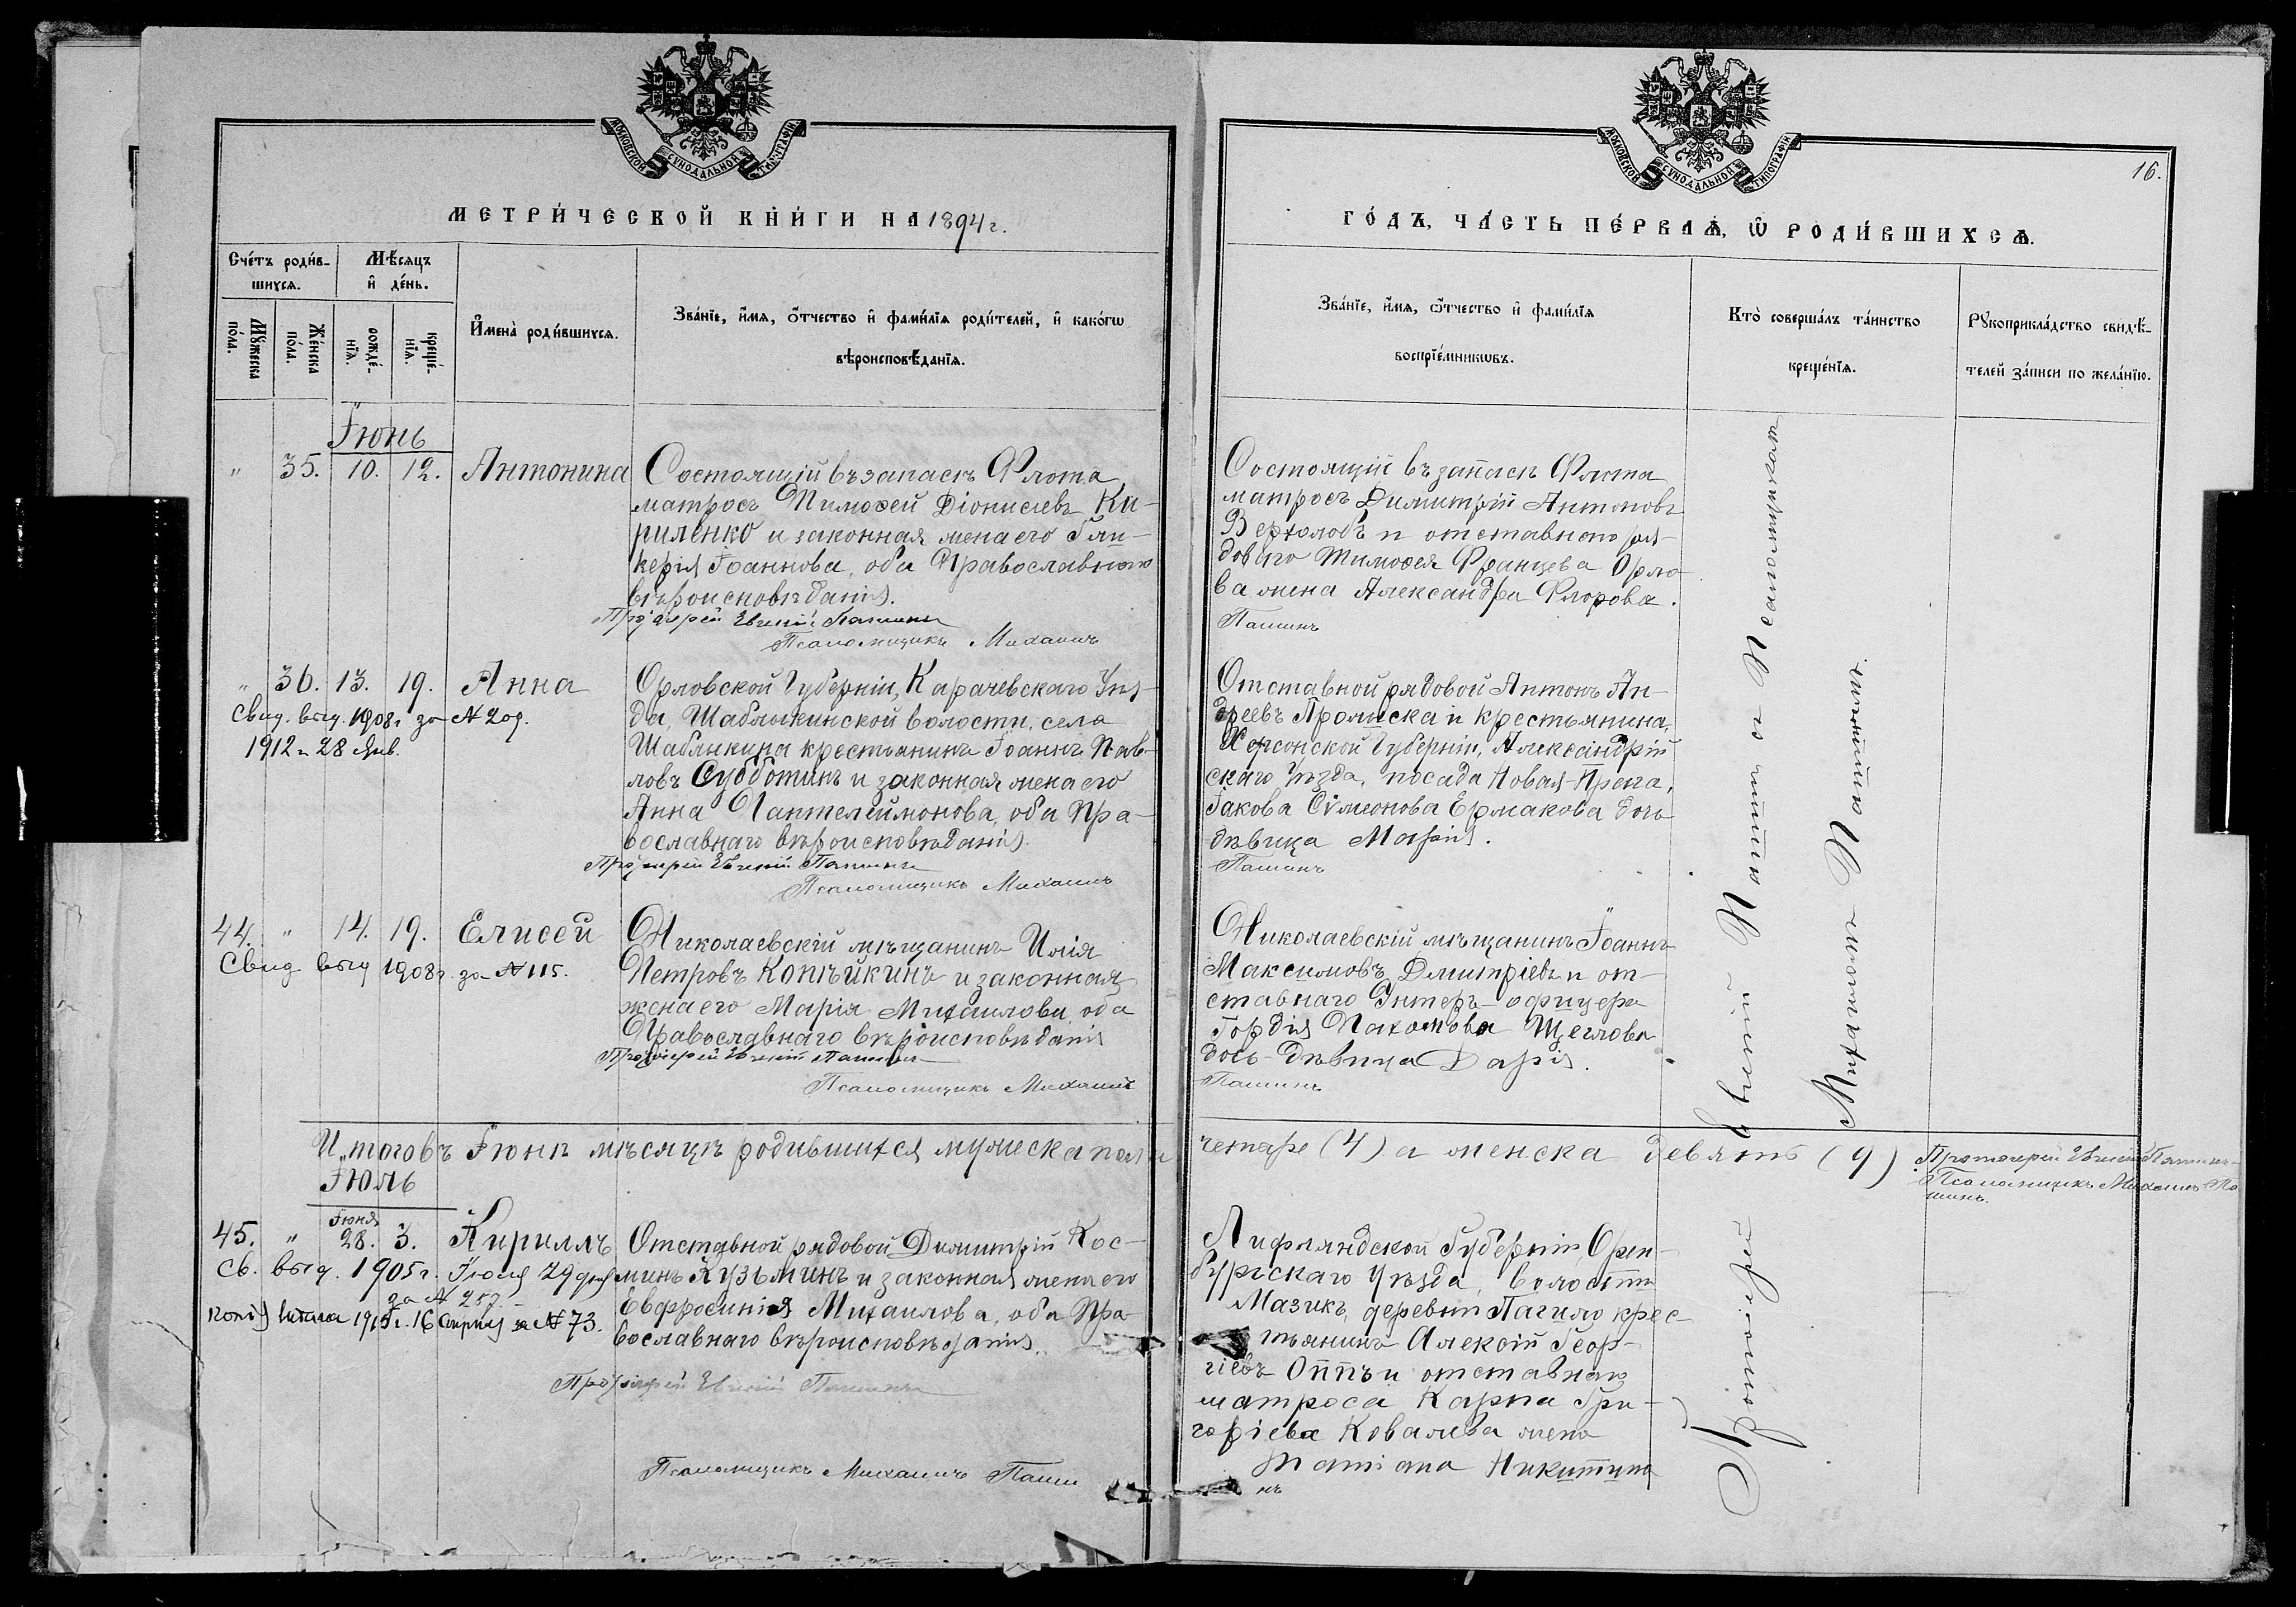 МОСКОВСКОЙ СѴНОДАЛЬНОЙ ТИПОГРАФІИ
МЕТРИ́ЧЕСКОЙ КНИ́ГИ НА 1894 г.
Сче́тъ роди́в-
шихсѧ.
Мѣ́сѧцъ
и҆ де́нь.
Мꙋ́жеска
по́ла.
Же́нска
по́ла.
рожде́-
нїѧ.
креще́-
нїѧ.
И҆мена̀ роди́вшихсѧ.
Зва́нїе, и҆́мѧ, ѻ҆́тчество и҆ фами́лїѧ роди́телей, и҆ како́гѡ
вѣроисповѣ́данїѧ.
Іюнь
" 35. 10. 12. Антонина
Состоящій въ запасѣ Флота
матросъ Тимоѳей Діонисіевъ Ки-
риленко и законная жена его Гли-
керія Іоаннова, оба Православнаго
вѣроисповѣданія.
Протоіерей Евгеній Пашинъ
Псаломщикъ Михаилъ
" 36. 13. 19. Анна
Свид. выд. 1908 г за № 209.
1912 г. 28 Янв.
Орловской Губерніи, Карачевскаго Уѣз-
да, Шаблыкинской волости, села
Шаблыкина крестьянинъ Іоаннъ Пав-
ловъ Субботинъ и законная жена его
Анна Пантелеймонова, оба Пра-
вославнаго вѣроисповѣданія.
Протоіерей Евгеній Пашинъ
Псаломщикъ Михаилъ
44. " 14. 19. Елисей
Свид выд 1908 г. за № 115.
Николаевскій мѣщанинъ Илія
Петровъ Копѣйкинъ и законная
жена его Марія Михаилова, оба
Православнаго вѣроисповѣданія
Протоіерей Евгеній Пашинъ
Псаломщикъ Михаилъ
Итого въ Іюнѣ мѣсяцѣ родившихся мужеска пола
Іюль
Іюня
45. " 28. 3. Кириллъ
Св. выд. 1905 г. Іюля 29 дня
за №
1915 г. 16 Апрѣля за № 73.
Отставной рядовой Димитрій Кос-
минъ Кузьминъ и законная жена его
Евфросинія Михаилова, оба Пра-
вославнаго вѣроисповѣданія.
Протоіерей Евгеній Пашинъ
Псаломщикъ Михаилъ Паши
МОСКОВСКОЙ СѴНОДАЛЬНОЙ ТИПОГРАФІИ
16.
ГО́ДЪ, ЧА́СТЬ ПЕ́РВАѦ, Ѡ҆ РОДИ́ВШИХСѦ.
Зва́нїе, и҆́мѧ, ѻ҆́тчество и҆ фами́лїѧ
воспрїе́мникѡвъ.
Кто̀ соверша́лъ та́инство
креще́нїѧ.
Рꙋкоприкла́дство свидѣ́-
телей за́писи по жела́нїю.
Состоящій въ запасѣ Флота
матросъ Димитрій Антоновъ
Верхоловъ и отставного ря-
дового Тимоѳея Францева Орло-
ва жена Александра Флорова.
Пашинъ
Отставной рядовой Антонъ Ан-
дреевъ и крестьянина,
Херсонской Губерніи, Александрій
скаго Уѣзда, посада Новая-Прага,
Іакова Симеонова Ермакова дочь
дѣвица Марія.
Пашинъ
Николаевскій мѣщанинъ Іоаннъ
Максимовъ Дмитріевъ и от-
ставнаго Унтеръ-офицера
Гордія Пахомова Щеглова
дочь-дѣвица Дарія.
Пашинъ
четыре (4) а женска девять (9)
Протоіерей Евгеній Пашинъ
Псаломщикъ Михаилъ Па
шинъ.
Лифляндской Губерніи, Орен-
бургскаго Уѣзда, волости
Мазикъ, деревни Пагило крес-
тьянинъ Алексій Геор-
гіевъ Оппъ и отставнаго
матроса Карпа Гри-
горіева Ковалева жена
Татіана Никитина
нъ
Протоіерей Евгеній Пашинъ съ Псаломщикомъ
Михаиломъ Пашинымъ.